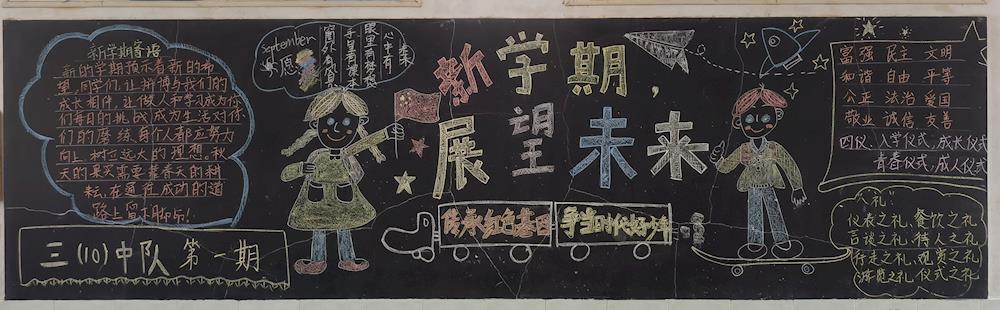 新学期寄语
新的学期预示着新的希
望,同学们,让拼搏与我们的
成长相伴,让做人和学习成为你
们每日的挑战,成为生活对你
们的磨练,每个人都应努力
向上,树立远大的理想。秋
天的果实需要靠春天的耕
耘,在通往成功的道
路上留下脚印!
三(10)中队 第一期
September
愿
眼里有梦想
心中有
新学期,
展望未来
传承红色基因
争当时代好少年
富强 民主 文明
和谐 自由 平等
公正 法治 爱国
敬业 诚信 友善
四仪:入学仪式,成长仪式
青春仪式,成人仪式
八礼:
仪表之礼、餐饮之礼
言谈之礼、待人之礼
行走之礼、观赏之礼
游览之礼、仪式之礼